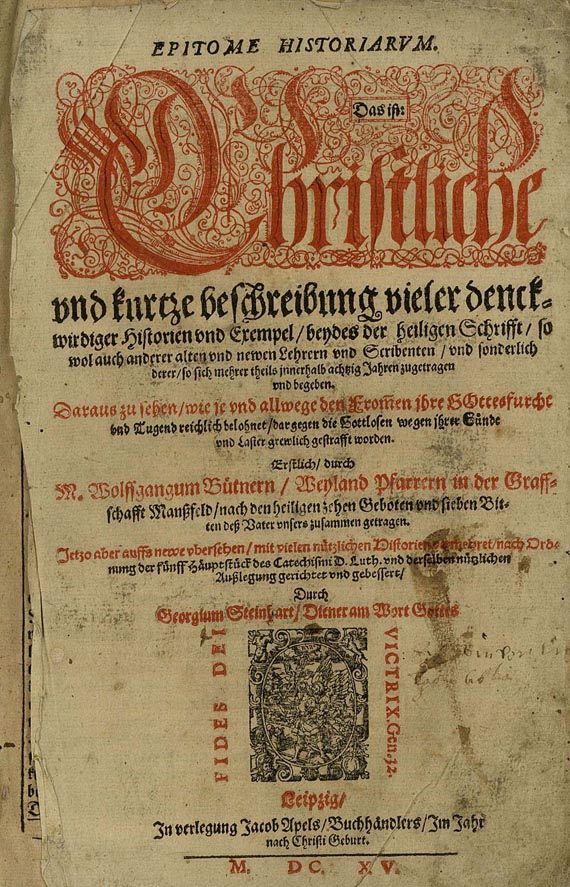 EPITOME HISTORIARVM.
Das ist:
Christliche
vnd kurtze beschreibung vieler denck-
wirdiger Historien vnd Exempel / beydes der heiligen Schrifft / so
wol auch anderer alten vnd newen Lehrern vnd Scribenten / vnd sonderlich
derer / so sich mehrer theils innerhalb achtzig Jahren zugetragen
vnd begeben.
Daraus zu sehen / wie je vnd allwege den Fromen jhre GOttesfurcht
vnd Tugend reichlich belohnet / dargegen die Gottlosen wegen jhrer Sünde
vnd Laster grewlich gestrafft worden.
Erstlich / durch
M. Wolffgangum Bütnern / Weyland Pfarrern in der Graff-
schafft Manßfeld / nach den heiligen zehen Geboten vnd sieben Bit-
ten deß Vater vnsers zusammen getragen.
Jetzo aber auffs newe vbersehen / mit vielen nützlichen Historien gemehret / nach Ord-
nung der fünff Häuptstück des Catechismi D. Luth. vnd derselben nützlichen
Außlegung gerichtet vnd gebessert /
Durch
Georgium Steinhart / Diener am Wort Gottes
FIDES DEI
VICTRIX. Gen. 32.
Leipzig /
In verlegung Jacob Apels / Buchhändlers / Im Jahr
nach Christi Geburt.
M. DC. XV.